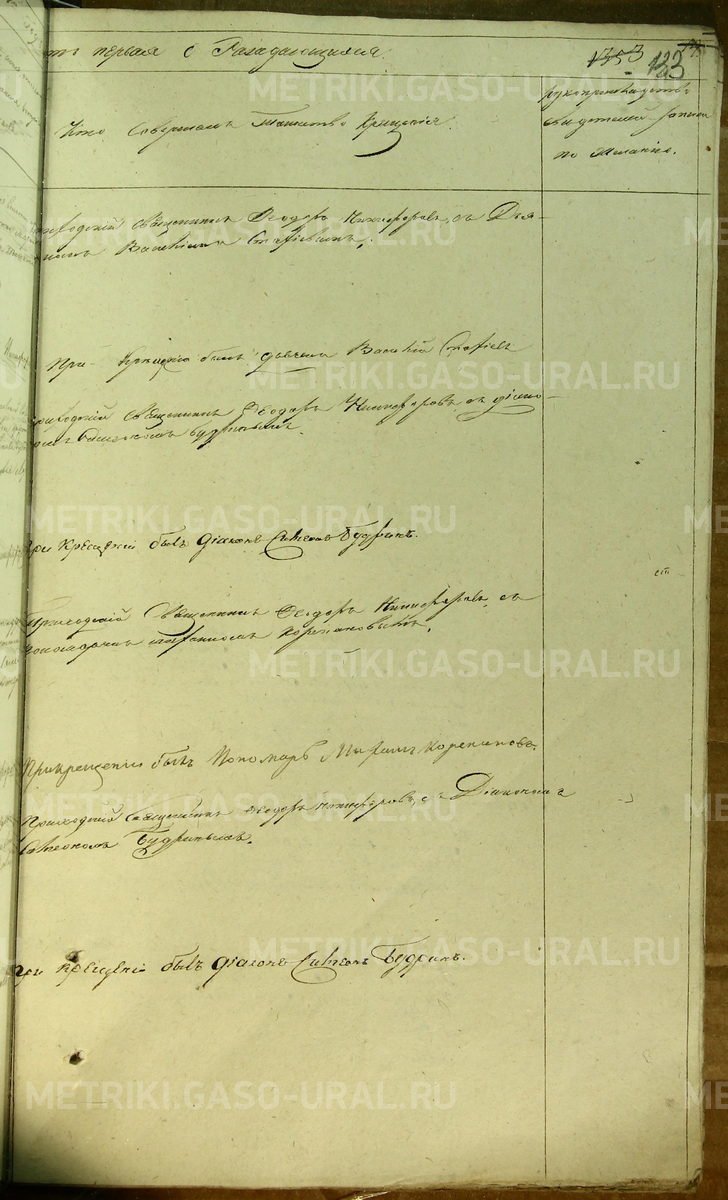 ть первая о Раждающихся.
1353 133
Кто совершалъ таинство крещенія.
рукоприкладство
свидетелей записи
по желанію.
Приходскій священникъ Ѳеодоръ Никифоровъ, съ Дья-
Василіемъ
При крещеніи былъ дьячекъ Василій
Приходскій священникъ Ѳеодоръ Никифоровъ съ діако-
номъ Симеономъ Будринымъ.
при крещеніи былъ діаконъ Симеонъ Будринъ.
Приходскій священникъ Ѳеодоръ Никифоровъ, съ
пономаремъ Корепановымъ.
При крещеніи былъ Пономарь Корепановъ.
Приходскій священникъ Ѳеодоръ Никифоровъ, съ Діакономъ
Симеономъ Будринымъ.
при крещеніи былъ діаконъ Симеонъ Будринъ.
METRIKI.GASO-URAL.RU